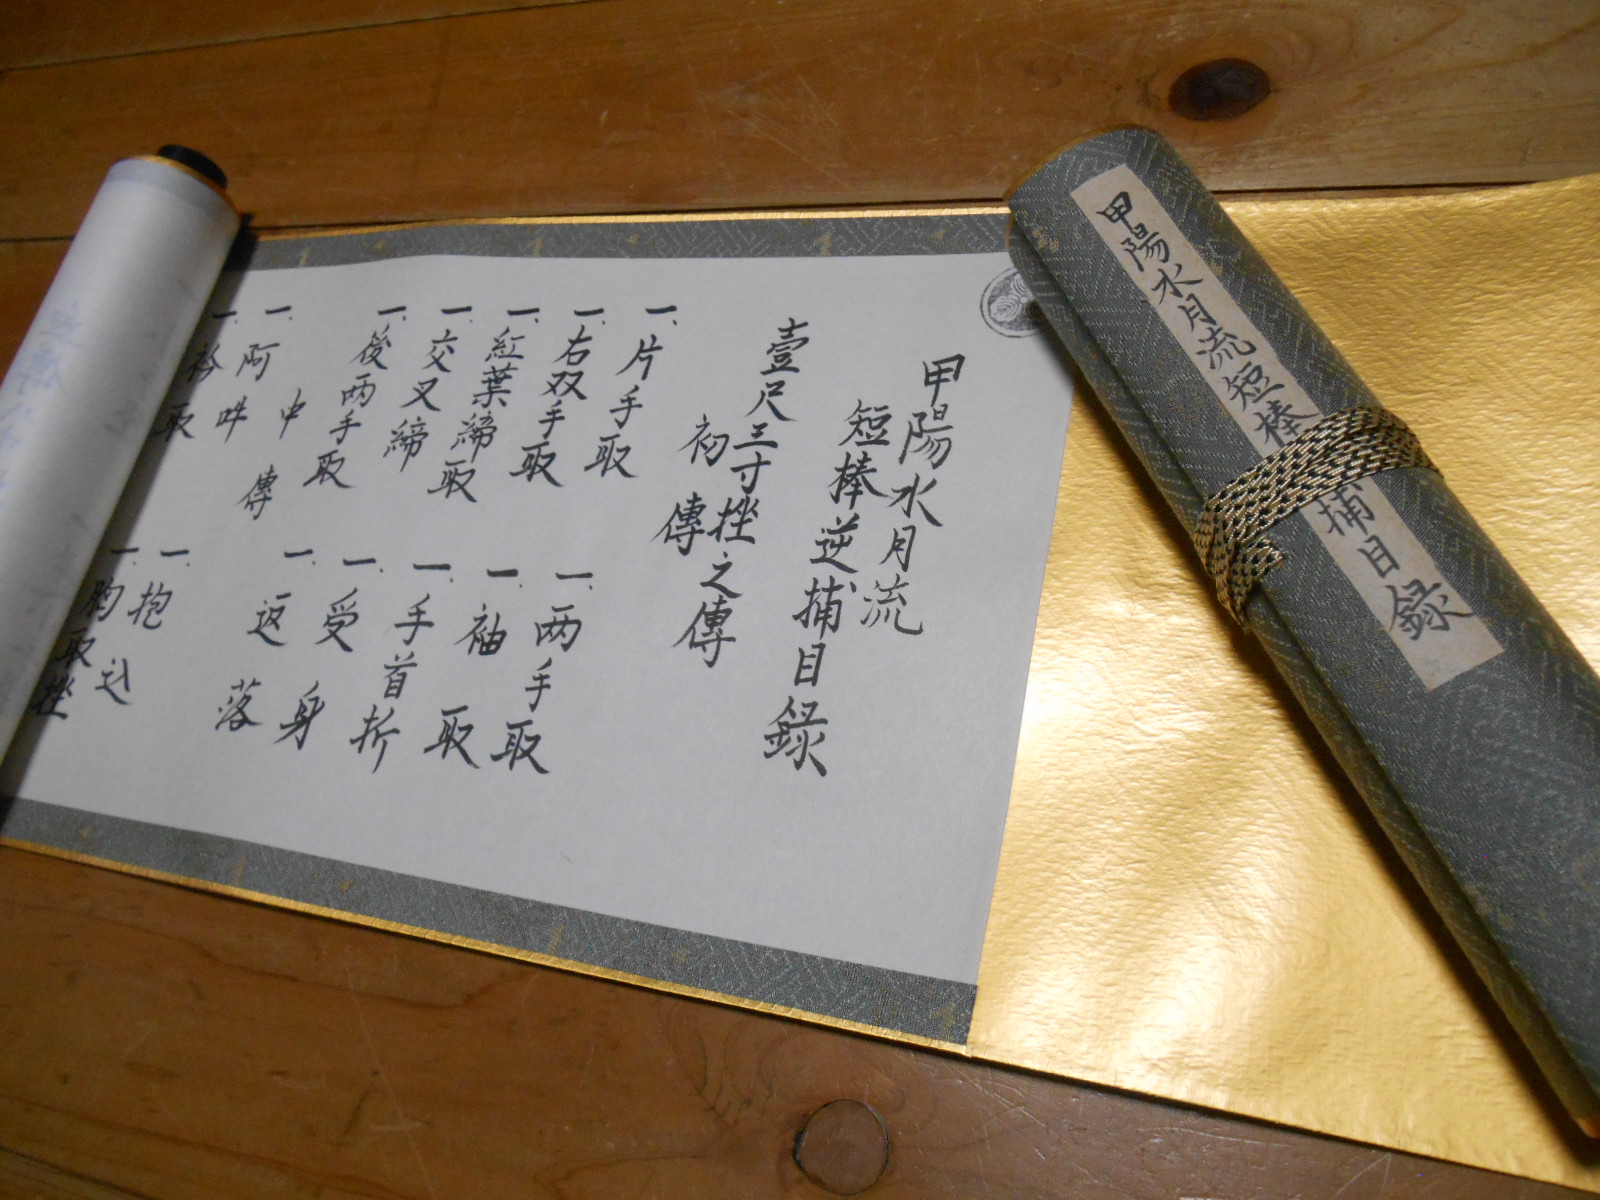 甲陽水月流短棒捕目録
甲陽水月流
短棒逆捕目録
壹尺三寸挫之傳
初傳
一、片手取 一、两手取
一、右双手取 一、袖取
一、紅葉締取 一、手首折
一、交叉締 一、受身
一、後两手取 一、返落
中傳
一、阿吽 一、抱込
一、衿取 一、胸取挫